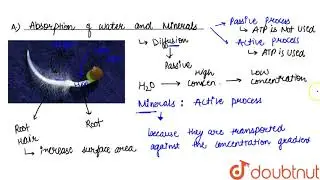 a) Absorption of water and Minerals
↳ Diffusion
↓
Passive
→ Passive process
↳ ATP is Not used
→ Active process
↳ ATP is used
H₂O → High Concen. → Low Concentration
Minerals : Active process
↳ because they are transported
against the concentration gradient
Root Hair
↳ increase surface area
Root
doubtnut